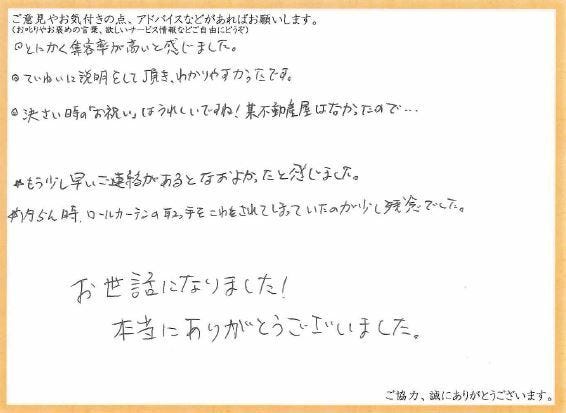 ご意見やお気付きの点、アドバイスなどがあればお願いします。
(お叱りやお褒めの言葉、欲しいサービス情報などご自由にどうぞ)
◎とにかく集客率が高いと感じました。
◎ていねいに説明をして頂き、わかりやすかったです。
◎決さい時の「お祝い」はうれしいですね!某不動産屋はなかったので…
*もう少し早いご連絡があるとなおよかったと感じました。
*内らん時、ロールカーテンの取っ手をこわされてしまっていたのが少し残念でした。
お世話になりました!
本当にありがとうございました。
ご協力、誠にありがとうございます。